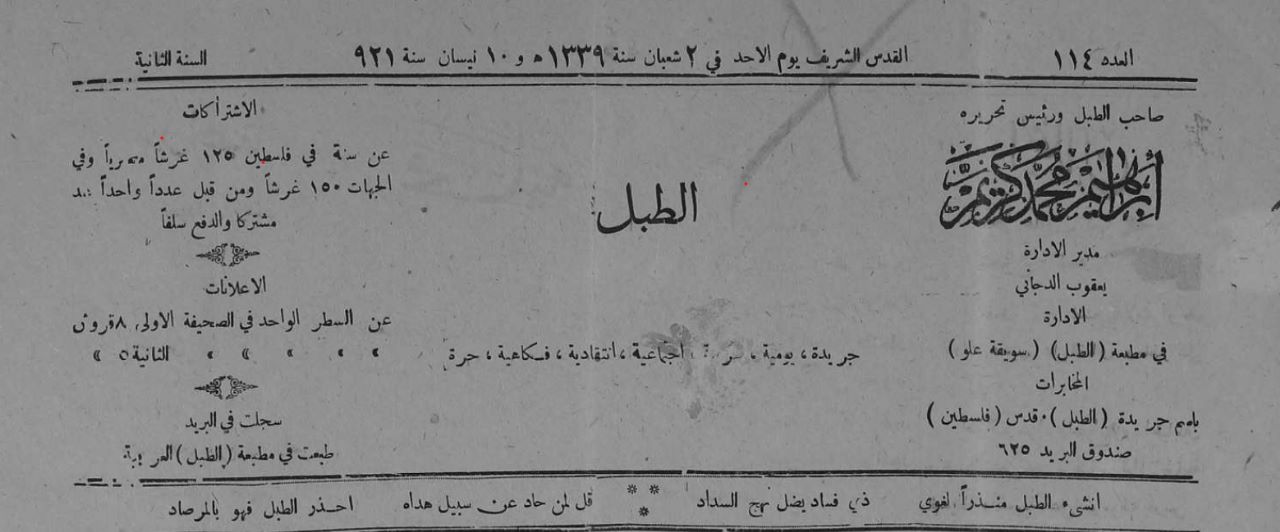 العدد ١١٤
القدس الشريف يوم الاحد في ٢ شعبان سنة ١٣٣٩ﻫ و ١٠ نيسان سنة ٩٢١
السنة الثانية
صاحب الطبل ورئيس تحريره
ابراهيم محمد كريم
مدير الادارة
يعقوب الدجاني
الادارة
في مطبعة (الطبل) (سويقة علو)
المخابرات
باسم جريدة (الطبل)٠قدس (فلسطين)
صندوق البريد ٦٢٥
الطبل
جريدة، يومية، اجتماعية، انتقادية، فكاهية، حرة
الاشتراكات
عن سنة في فلسطين ١٢٥ غرشاً مصرياً وفي
الجهات ١٥٠ غرشاً ومن قبل عدداً واحداً
مشتركا والدفع سلفاً
الاعلانات
عن السطر الواحد في الصحيفة الاولى ٨ قروش
» » » » » الثانية ٥ »
سجلت في البريد
طبعت في مطبعة (الطبل) العربية
انشىء الطبل منذراً لغوي ذي فساد يضل نهج السداد
قل لمن حاد عن سبيل هداه احذر الطبل فهو بالمرصاد